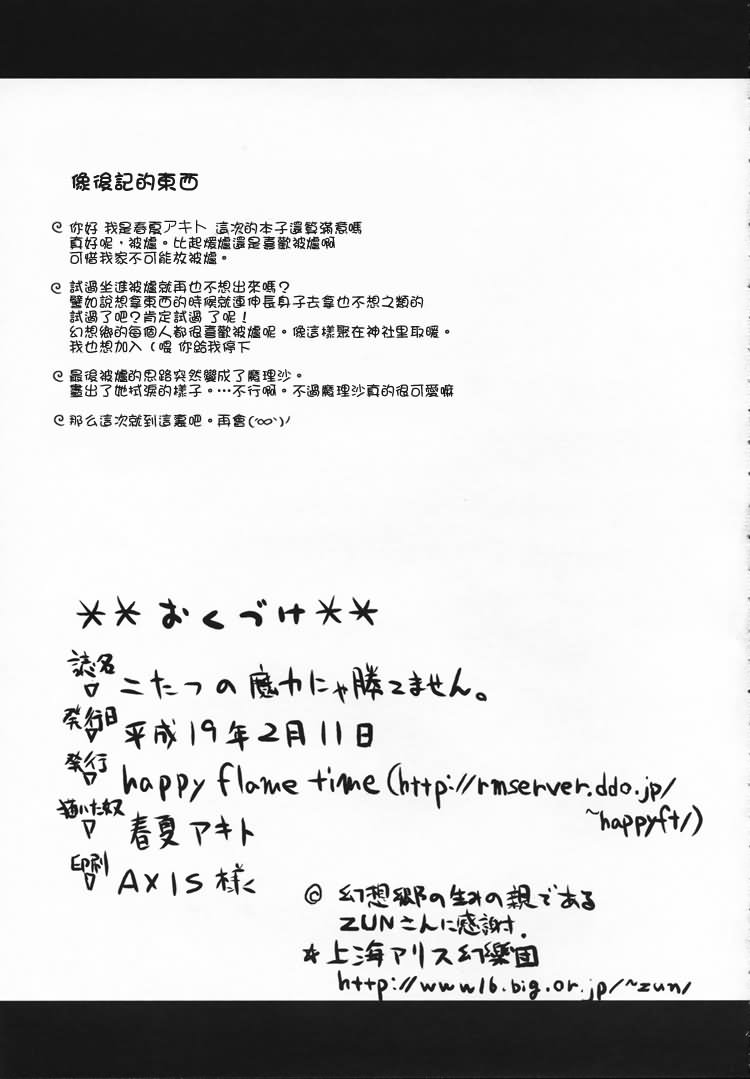 像後記的東西
你好 我是春夏アキト 這次的本子還算滿意嗎
真好呢，被爐。比起煖爐還是喜歡被爐啊
可借我家不可能放被爐。
試過坐進被爐就再也不想出來嗎？
譬如說想拿東西的時候就連伸長身子去拿也不想之類的
試過了吧？肯定試過 了呢！
幻想鄉的每個人都很喜歡被爐呢。像這樣聚在神社里取暖。
我也想加入（喂 你給我停下
最後被爐的思路突然變成了魔理沙。
畫出了她拭淚的樣子。…不行啊。不過魔理沙真的很可愛嘛
那么這次就到這裏吧。再會(´∞`)ﾉ
**おくづけ**
誌名 こたつの魔力にゃ勝てません。
発行日 平成19年2月11日
発行 happy flame time (http://rmserver.ddo.jp/
~happyft/)
描いた奴 春夏アキト
印刷 AXIS様
© 幻想郷の生みの親である
ZUNさんに感謝.
☆上海アリス幻樂団
http://www16.big.or.jp/~zun/